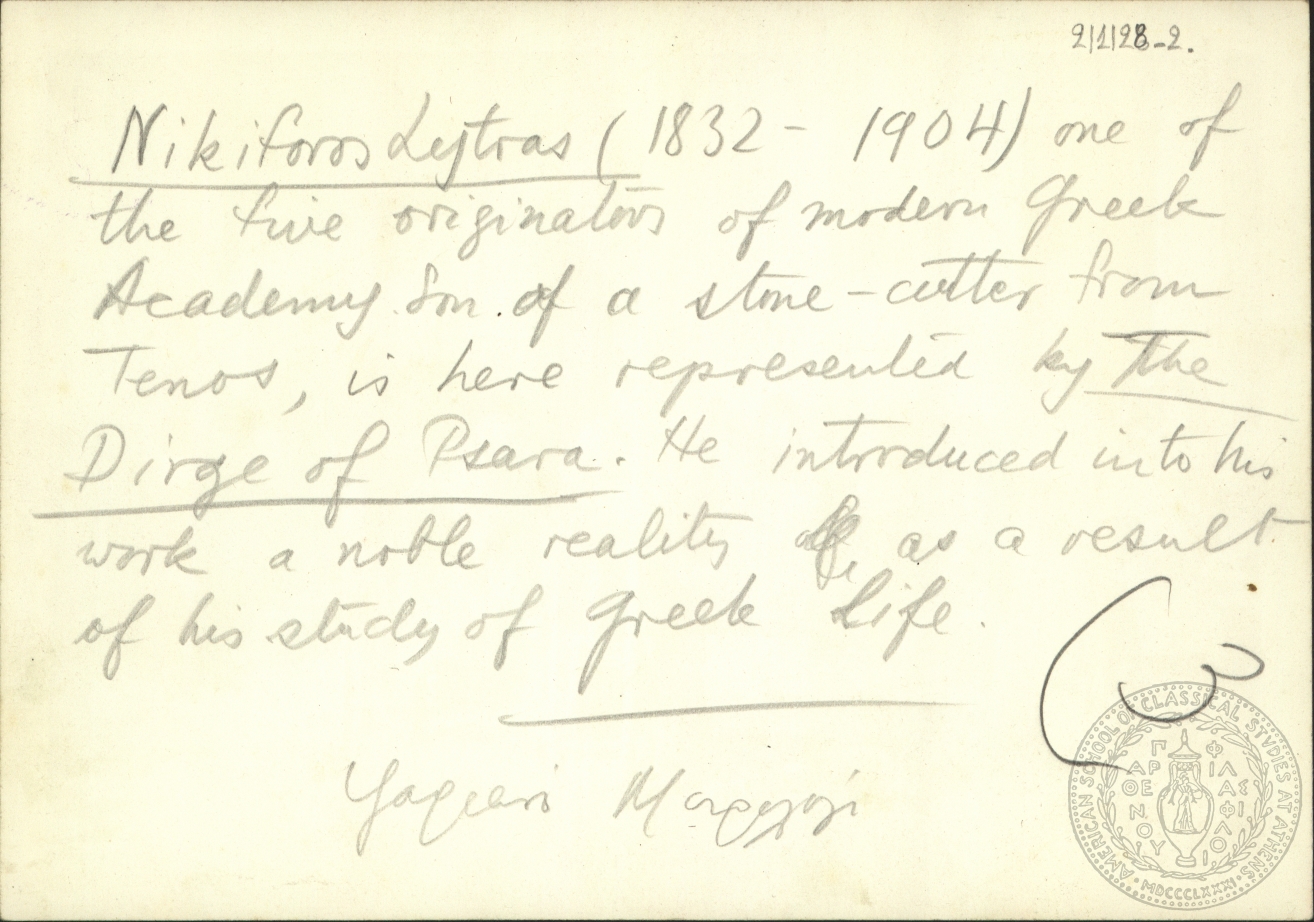 2|1|28-2.
Nikiforos Lytras (1832 - 1904) one of
the five originators of modern Greek
Academy. Son of a stone-cutter from
Tenos, is here represented by The
Dirge of Psara. He introduced into his
work a noble reality as a result
of his study of Greek Life.
AMERICAN SCHOOL OF CLASSICAL STUDIES AT ATHENS
MDCCCLXXXI
ΠΑΡΘΕΝΟΥ ΦΙΛΑΣ ΦΙΛΟ